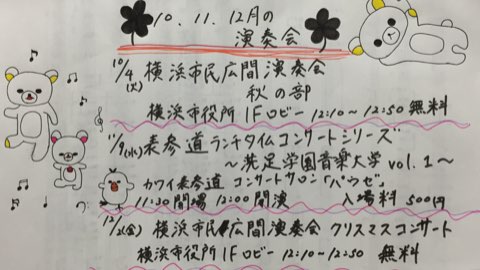 10、11、12月の
演奏会
10/4(火) 横浜市民広間演奏会
秋の部
横浜市役所 1Fロビー 12:10〜12:50 無料
11/9(水) 表参道ランチタイムコンサートシリーズ
〜洗足学園音楽大学 vol.1〜
カワイ表参道 コンサートサロン「パウゼ」
11:30開場 12:00開演 入場料 500円
12/2(金) 横浜市民広間演奏会 クリスマスコンサート
横浜市役所 1Fロビー 12:10〜12:50 無料